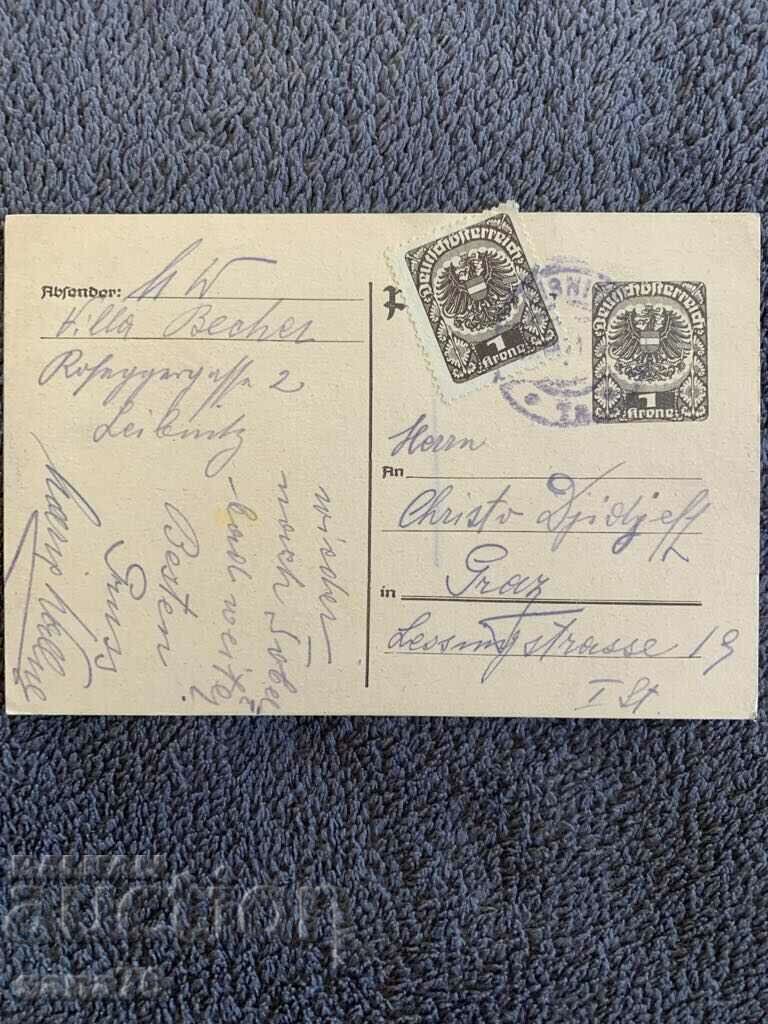 Absender: H W
Villa Becher
Roseggergasse 2
Leibnitz
wieder
nach Tobel
bad weiter
Besten
Gruss
Deutschösterreich
1
Krone
Deutschösterreich
1
Krone
Herrn
An
Christo Djidjeff
in Graz
Lessingstrasse 19
I St.
BALKAN
auction